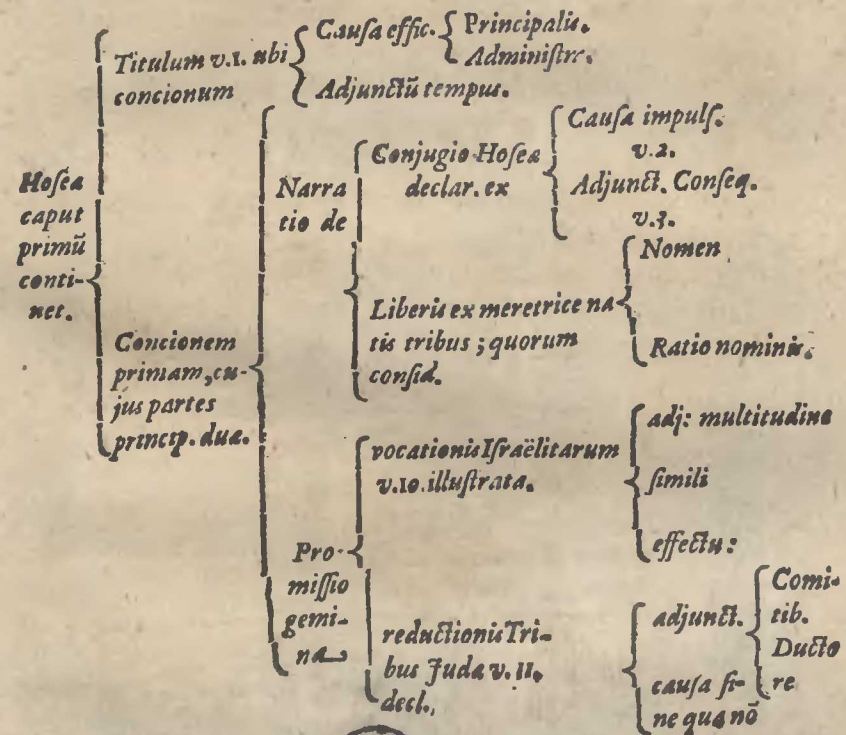 Hoſea
caput
primū
conti-
net.
Titulum v.1. ubi
concionum
Cauſa effic.
Principalis.
Adminiſtre.
Adjunctū tempus.
Concionem
primam, cu-
jus partes
princip. duæ.
Narra
tio de
Conjugio Hoſeæ
declar. ex
Cauſa impulſ.
v.2.
Adjunct. Conſeq.
v.3.
Liberis ex meretrice na
tis tribus ; quorum
conſid.
Nomen
Ratio nominis.
Pro-
miſſio
gemi-
na
vocationis Iſraëlitarum
v.10. illuſtrata.
adj: multitudine
ſimili
effectu :
reductionis Tri-
bus Juda v. 11.
decl.
adjunct.
Comi-
tib.
Ducto
re
cauſa ſi-
ne qua nō